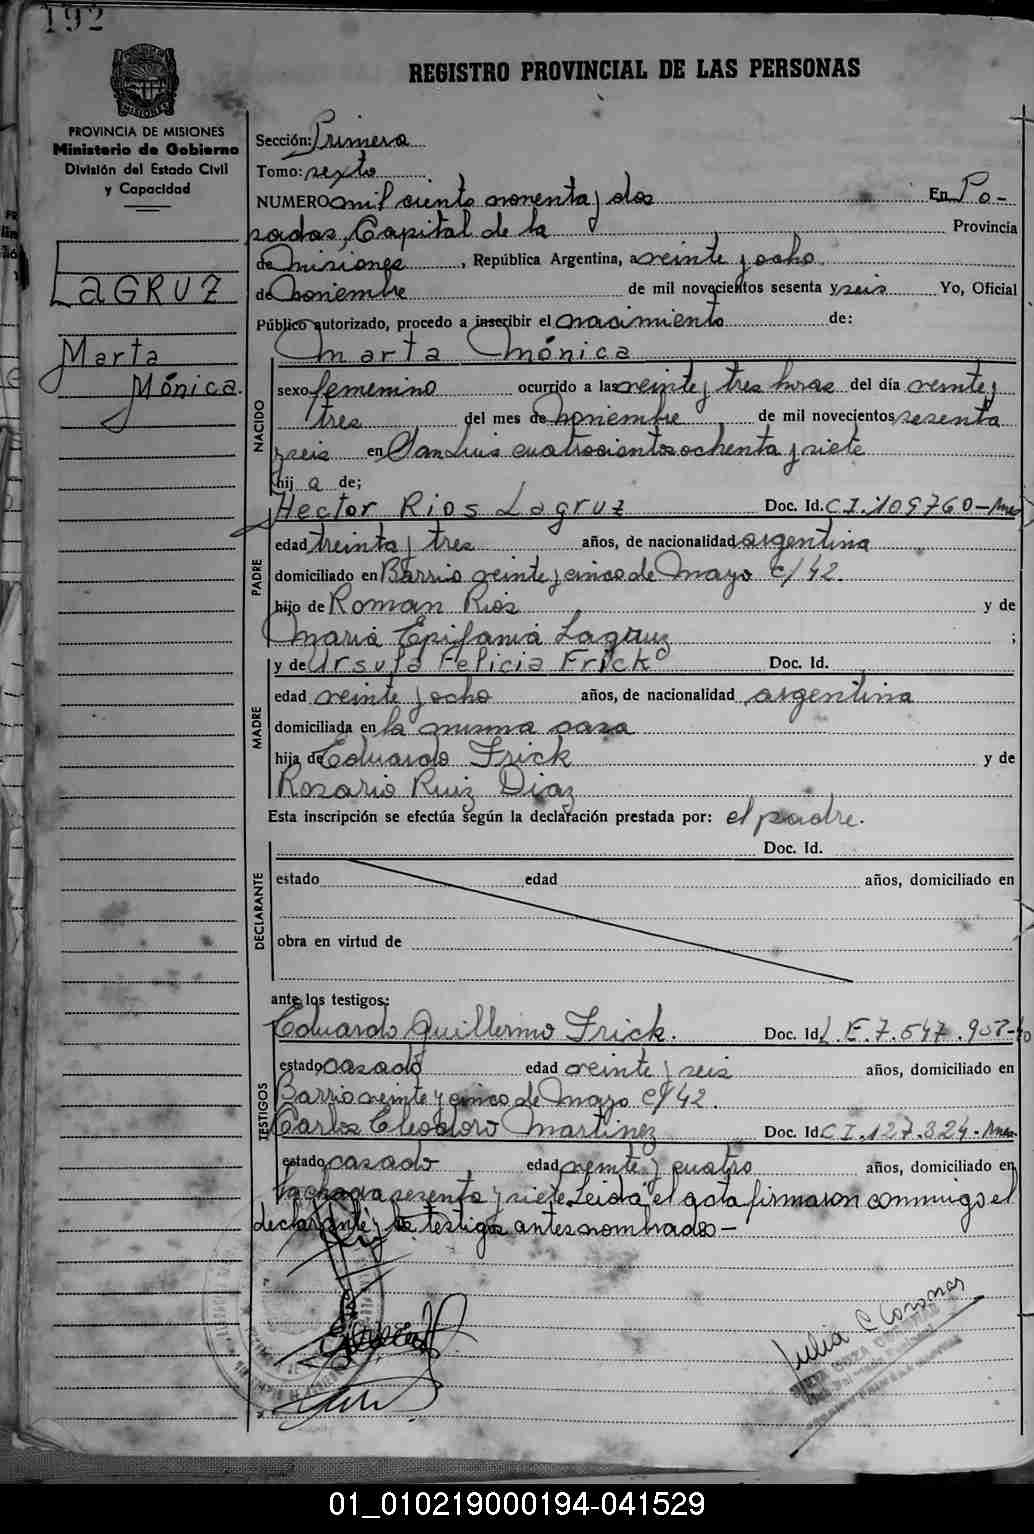 192
REGISTRO PROVINCIAL DE LAS PERSONAS
PROVINCIA DE MISIONES
Ministerio de Gobierno
División del Estado Civil
y Capacidad
LAGRUZ
Marta
Mónica.
Sección: Primera
Tomo: sexto
NUMERO mil ciento noventa y dos En Po-
sadas, Capital de la Provincia
de Misiones, República Argentina, a veinte y ocho
de Noviembre de mil novecientos sesenta y seis Yo, Oficial
Público autorizado, procedo a inscribir el nacimiento de:
Marta Mónica
NACIDO
sexo femenino ocurrido a las veinte y tres horas del día veinte y
tres del mes de Noviembre de mil novecientos sesenta
y seis en San Luis cuatrocientos ochenta y siete
hij a de;
PADRE
Hector Rios Lagruz Doc. Id. C.I. 109760-Mnes
edad treinta y tres años, de nacionalidad argentina
domiciliado en Barrio veinte y cinco de Mayo c/42.
hijo de Roman Rios y de
Maria Epifania Lagruz ;
MADRE
y de Ursula Felicia Frick Doc. Id.
edad veinte y ocho años, de nacionalidad argentina
domiciliada en la misma casa
hija de Eduardo Frick y de
Rosario Ruiz Diaz
Esta inscripción se efectúa según la declaración prestada por: el padre.
DECLARANTE
Doc. Id.
estado edad años, domiciliado en
obra en virtud de
ante los testigos:
TESTIGOS
Eduardo Guillermo Frick. Doc. Id. L.E. 7.547.
estado casado edad veinte y seis años, domiciliado en
Barrio veinte y cinco de Mayo c/42.
Carlos Cleodoro Martinez Doc. Id. C.I. 127.324-Mnes.
estado casado edad veinte y cuatro años, domiciliado en
Chacra sesenta y siete. Leida el acta firmaron conmigo el
declarante y los testigos antes nombrados-
Julia C Coronas
01_010219000194-041529